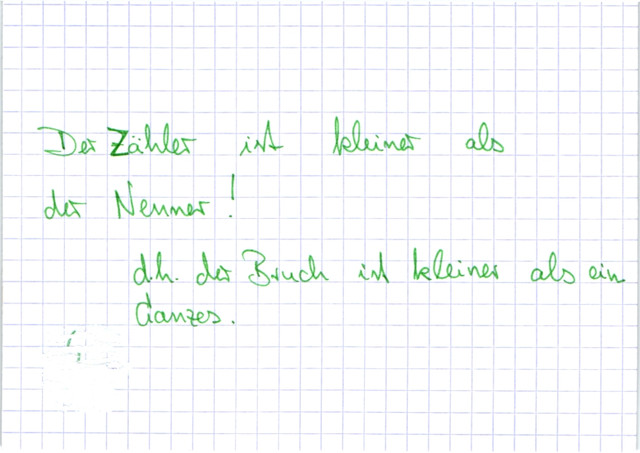 Der Zähler ist kleiner als
der Nenner!
d.h. der Bruch ist kleiner als ein
Ganzes.